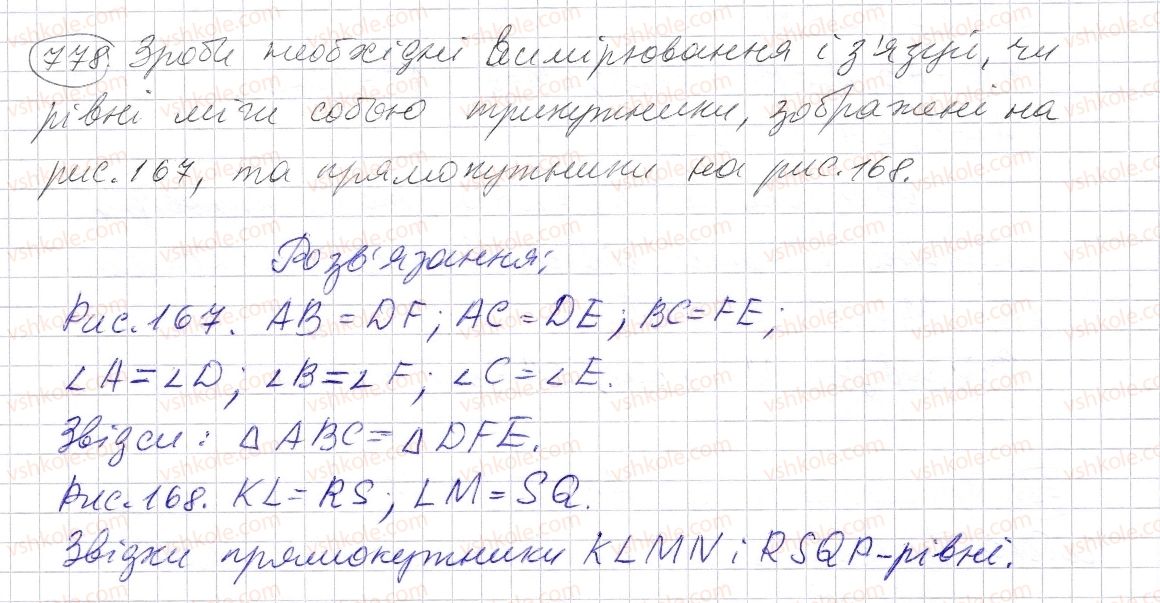 778. Зроби необхідні вимірювання і з'ясуй, чи
рівні між собою трикутники, зображені на
рис. 167, та прямокутники на рис. 168.
Розв'язання:
Рис. 167. AB = DF; AC = DE; BC = FE;
∠A = ∠D; ∠B = ∠F; ∠C = ∠E.
Звідси: △ABC = △DFE.
Рис. 168. KL = RS; LM = SQ.
Звідки прямокутники KLMN і RSQP - рівні.